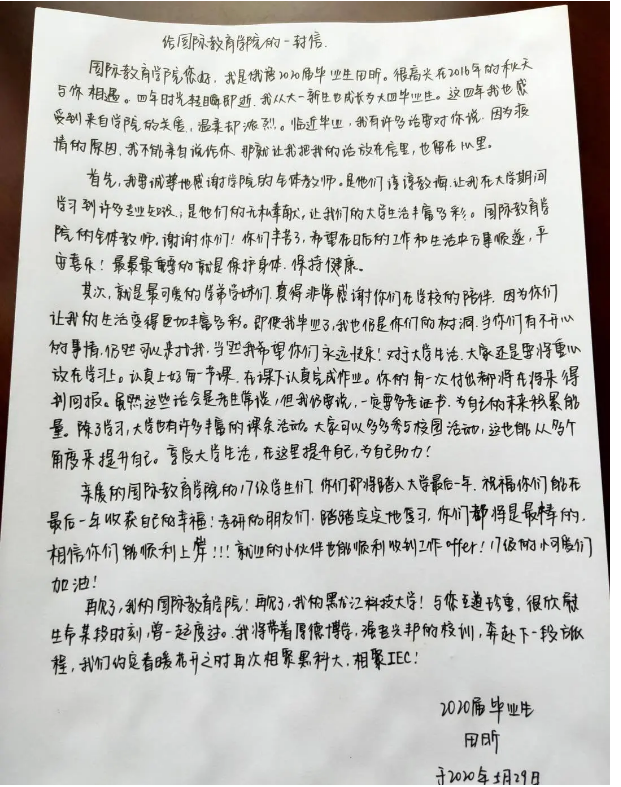 给国际教育学院的一封信.
国际教育学院您好，我是俄语2020届毕业生田昕。很高兴在2016年的秋天
与你相遇。四年时光转瞬即逝，我从大一新生也成长为大四毕业生。这四年我也感
受到来自学院的关爱，温柔却浓烈。临近毕业，我有许多话要对你说，因为疫
情的原因，我不能亲自说给你，那就让我把我的话放在信里，也留在心里。
首先，我要诚挚地感谢学院的全体教师。是他们谆谆教诲，让我在大学期间
学习到许多专业知识，是他们的无私奉献，让我们的大学生活丰富多彩。国际教育学
院的全体教师，谢谢你们！你们辛苦了，希望在日后的工作和生活中万事顺遂，平
安喜乐！最最最重要的就是保护身体，保持健康。
其次，就是最可爱的学弟学妹们，真得非常感谢你们在学校的陪伴，因为你们
让我的生活变得更加丰富多彩。即使我毕业了，我也仍是你们的树洞，当你们有不开心
的事情，仍然可以来找我，当然我希望你们永远快乐！对于大学生活，大家还是要将重心
放在学习上。认真上好每一节课，在课下认真完成作业。你的每一次付出都将在将来得
到回报。虽然这些话会是老生常谈，但我仍要说，一定要多考证书，为自己的未来积累能
量。除了学习，大学也有许多丰富的课余活动，大家可以多多参与校园活动，这也能从多个
角度来提升自己。享受大学生活，在这里提升自己，为自己助力！
亲爱的国际教育学院的17级学生们，你们即将踏入大学最后一年，祝福你们能在
最后一年收获自己的幸福！考研的朋友们，踏踏实实地复习，你们都将是最棒的，
相信你们能顺利上岸！！！就业的小伙伴也能顺利收到工作offer！17级的小可爱们
加油！
再见了，我的国际教育学院！再见了，我的黑龙江科技大学！与您互道珍重，很欣慰
生命某段时刻，曾一起度过。我将带着厚德博学，强吾兴邦的校训，奔赴下一段旅
程，我们约定春暖花开之时再次相聚黑科大，相聚IEC！
2020届毕业生
田昕
于2020年5月29日